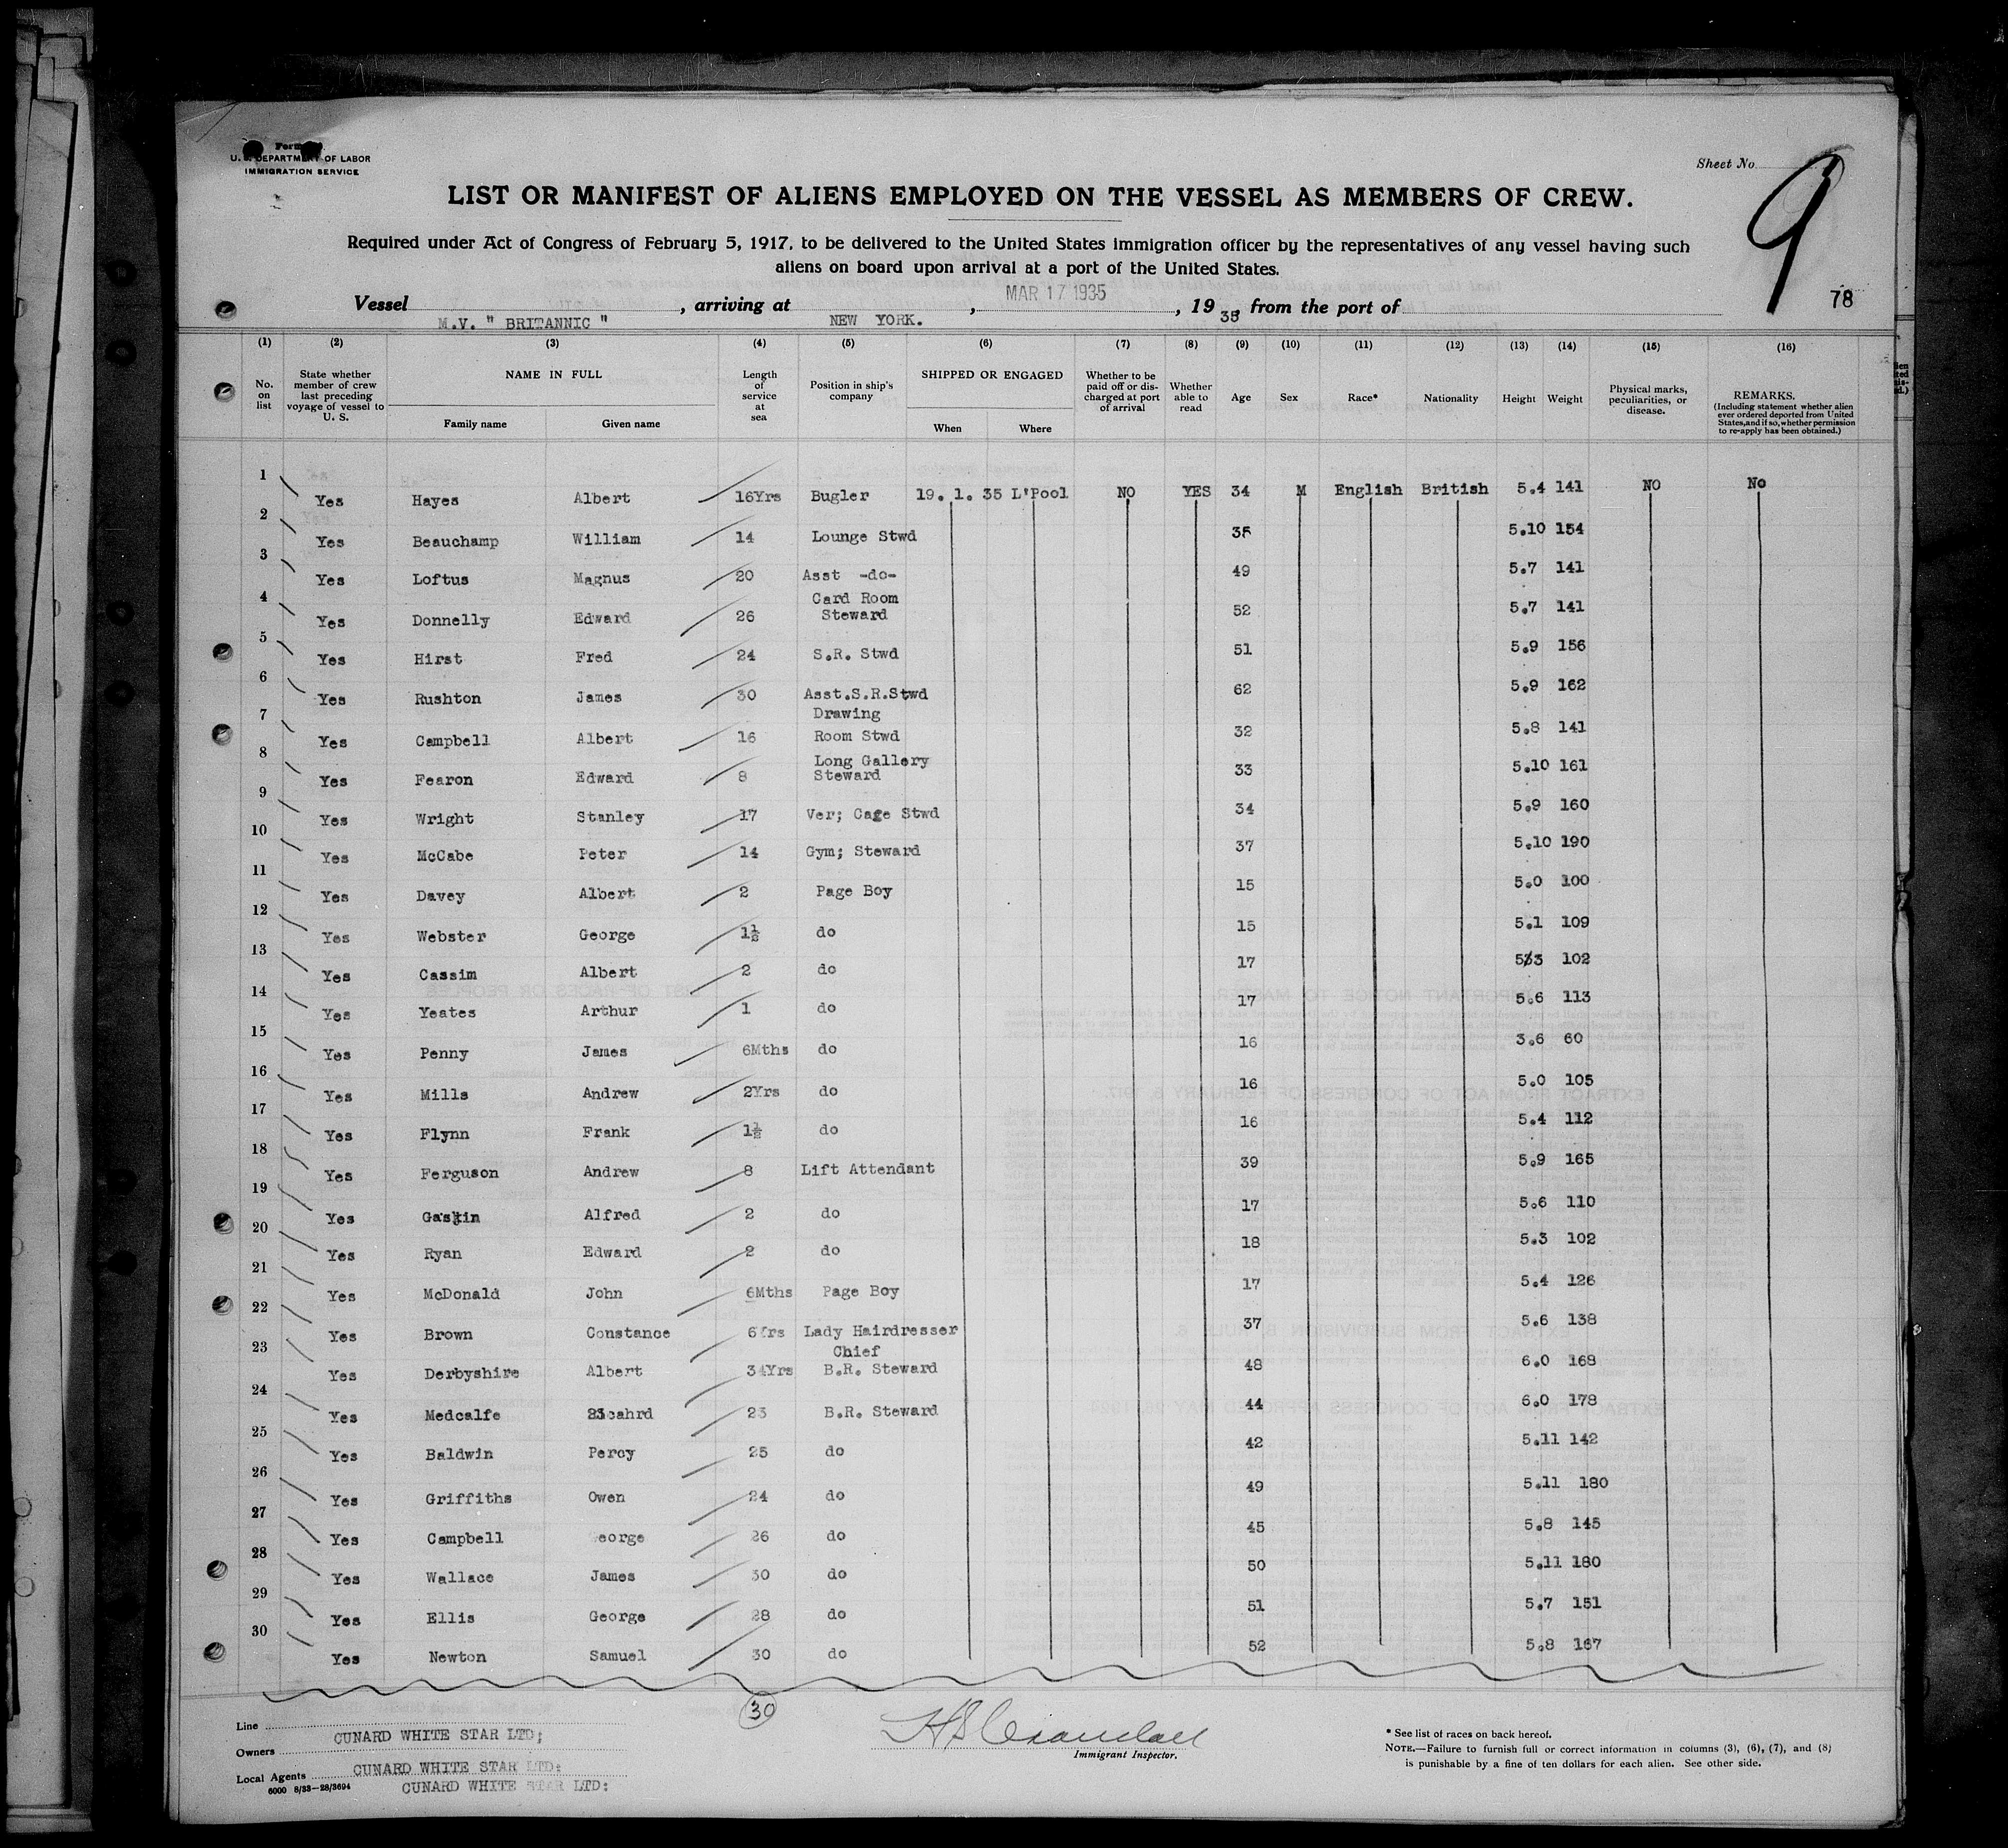 Form
U. S. DEPARTMENT OF LABOR
IMMIGRATION SERVICE
Sheet No.
9
LIST OR MANIFEST OF ALIENS EMPLOYED ON THE VESSEL AS MEMBERS OF CREW.
Required under Act of Congress of February 5, 1917, to be delivered to the United States immigration officer by the representatives of any vessel having such
aliens on board upon arrival at a port of the United States.
Vessel M.V. " BRITANNIC ", arriving at NEW YORK., MAR 17 1935, 19 35, from the port of
78
(1) (2) (3) (4) (5) (6) (7) (8) (9) (10) (11) (12) (13) (14) (15) (16)
No. on list
State whether member of crew last preceding voyage of vessel to U. S.
NAME IN FULL
Family name Given name
Length of service at sea
Position in ship's company
SHIPPED OR ENGAGED
When Where
Whether to be paid off or discharged at port of arrival
Whether able to read
Age Sex Race* Nationality Height Weight
Physical marks, peculiarities, or disease.
REMARKS.
(Including statement whether alien ever ordered deported from United States, and if so, whether permission to re-apply has been obtained.)
1 Yes Hayes Albert 16Yrs Bugler 19. 1. 35 L'Pool NO YES 34 M English British 5.4 141 NO No
2 Yes Beauchamp William 14 Lounge Stwd 35 5.10 154
3 Yes Loftus Magnus 20 Asst -do- 49 5.7 141
4 Yes Donnelly Edward 26 Card Room Steward 52 5.7 141
5 Yes Hirst Fred 24 S.R. Stwd 51 5.9 156
6 Yes Rushton James 30 Asst.S.R.Stwd 62 5.9 162
7 Yes Campbell Albert 16 Drawing Room Stwd 32 5.8 141
8 Yes Fearon Edward 8 Long Gallery Steward 33 5.10 161
9 Yes Wright Stanley 17 Ver; Cafe Stwd 34 5.9 160
10 Yes McCabe Peter 14 Gym; Steward 37 5.10 190
11 Yes Davey Albert 2 Page Boy 15 5.0 100
12 Yes Webster George 1½ do 15 5.1 109
13 Yes Cassim Albert 2 do 17 5.3 102
14 Yes Yeates Arthur 1 do 17 5.6 113
15 Yes Penny James 6Mths do 16 3.6 60
16 Yes Mills Andrew 2Yrs do 16 5.0 105
17 Yes Flynn Frank 1½ do 16 5.4 112
18 Yes Ferguson Andrew 8 Lift Attendant 39 5.9 165
19 Yes Gaskin Alfred 2 do 17 5.6 110
20 Yes Ryan Edward 2 do 18 5.3 102
21 Yes McDonald John 6Mths Page Boy 17 5.4 126
22 Yes Brown Constance 6Yrs Lady Hairdresser 37 5.6 138
23 Yes Derbyshire Albert 34Yrs Chief B.R. Steward 48 6.0 168
24 Yes Medcalfe 23 B.R. Steward 44 6.0 178
25 Yes Baldwin Percy 25 do 42 5.11 142
26 Yes Griffiths Owen 24 do 49 5.11 180
27 Yes Campbell eorge 26 do 45 5.8 145
28 Yes Wallace James 30 do 50 5.11 180
29 Yes Ellis George 28 do 51 5.7 151
30 Yes Newton Samuel 30 do 52 5.8 167
30
Line CUNARD WHITE STAR LTD;
Owners CUNARD WHITE STAR LTD:
Local Agents CUNARD WHITE STAR LTD:
6000 8/33—28/3694
H S Crandall
Immigrant Inspector.
* See list of races on back hereof.
NOTE.—Failure to furnish full or correct information in columns (3), (6), (7), and (8)
is punishable by a fine of ten dollars for each alien. See other side.